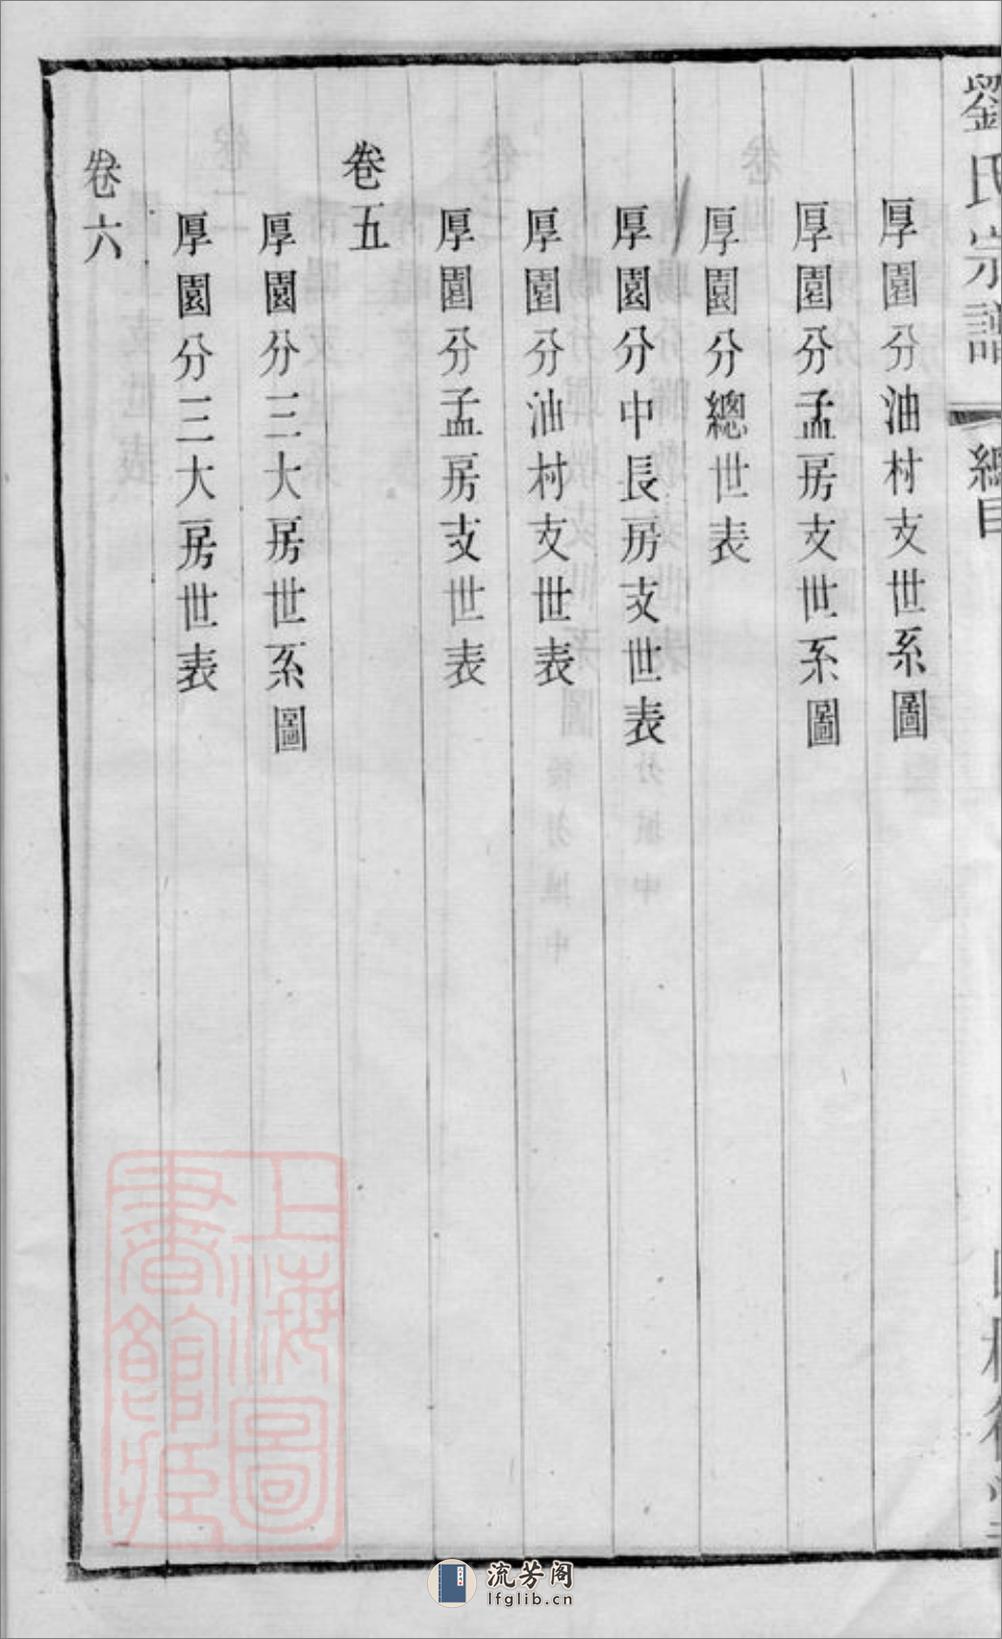 劉氏宗譜
總目
厚園分油村支世系圖
厚園分孟房支世系圖
厚園分總世表
厚園分中長房支世表
厚園分油村支世表
厚園分孟房支世表
卷五
厚園分三大房世系圖
厚園分三大房世表
卷六
上海圖
書館藏
流芳阁
lfglib.cn